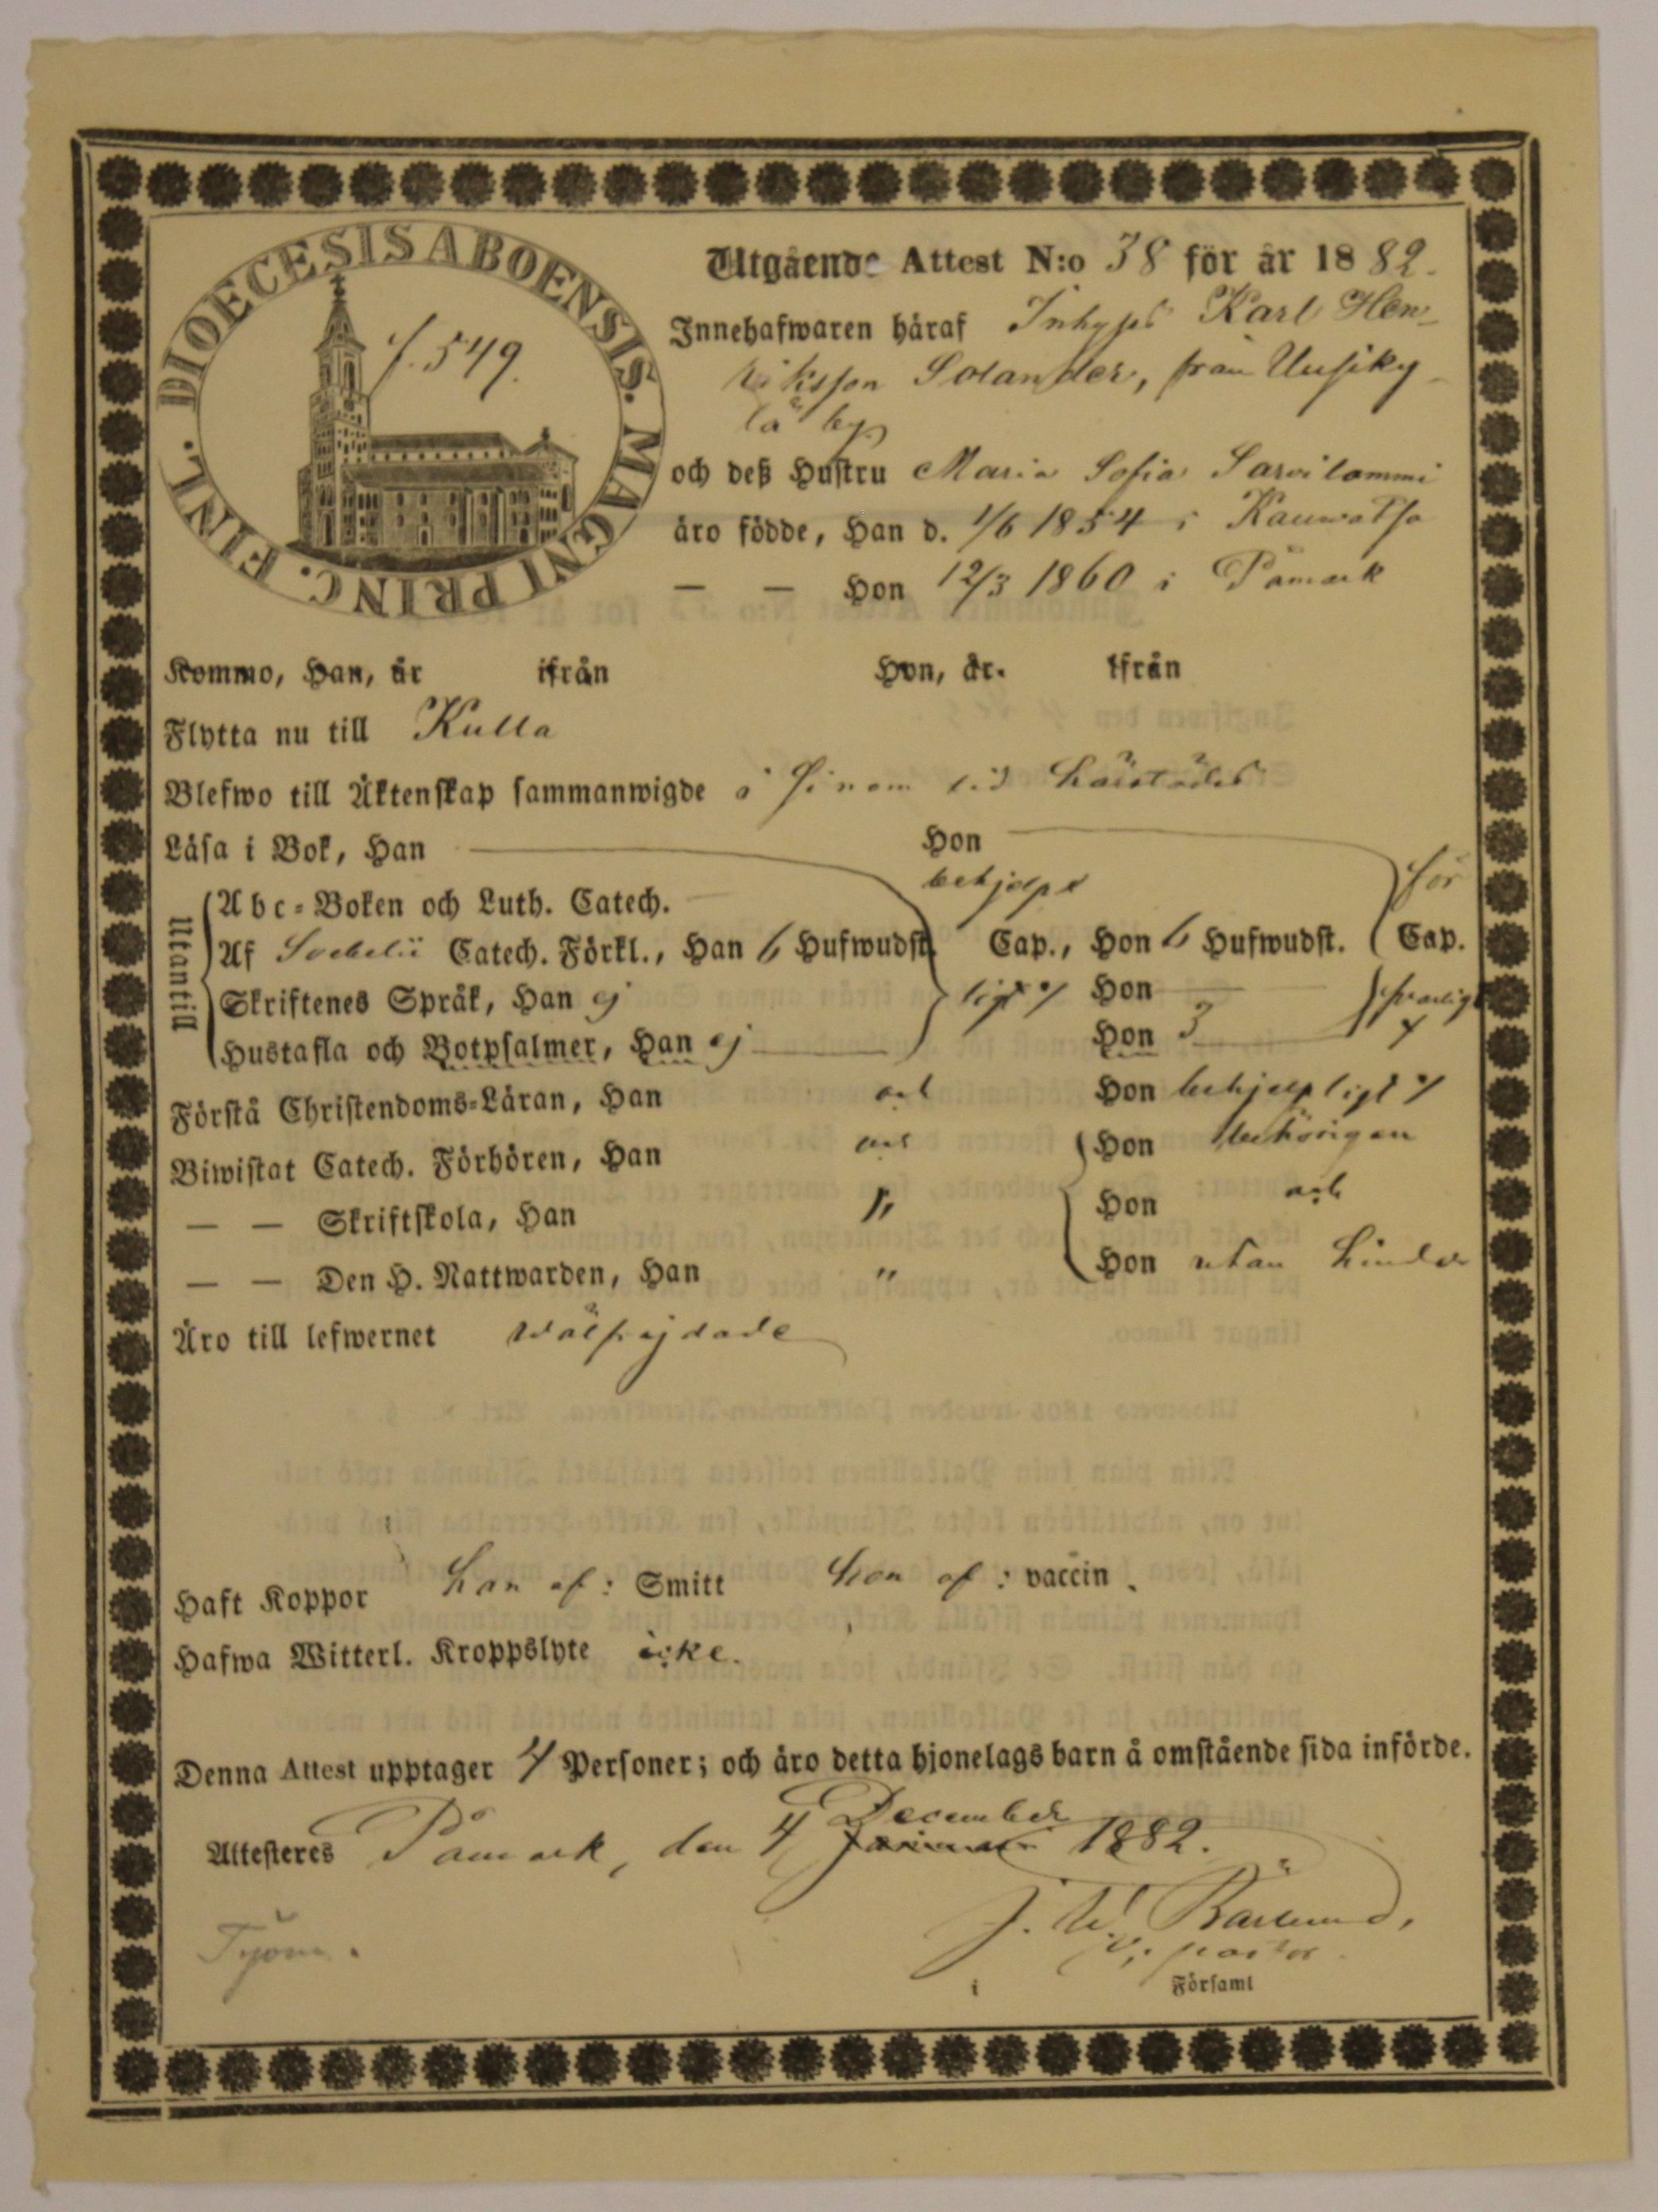 DIOECESIS ABOENSIS. MAGNI PRINC. FINL.
f. 549.
Utgående Attest N:o 38 för år 1882.
Innehafwaren häraf Inhyss Karl Hen-
riksson Solander, från Uusiky-
lä by
och deß Hustru Maria Sofia Sarvilammi
äro födde, Han d. 1/6 1854 i Kauvatsa
— — Hon 12/3 1860 i Påmark
Kommo, Han, år ifrån Hon, år. ifrån
Flytta nu till Kulla
Blefwo till Äktenskap sammanwigde i sinom tid härstädes
Läsa i Bok, Han Hon
behjelp för
Utantill
Abc-Boken och Luth. Catech.
Af Svebelii Catech. Förkl., Han 6 Hufwudst. Cap., Hon 6 Hufwudst. Cap.
Skriftenes Språk, Han ej ligt Hon svarligt
Hustafla och Botpsalmer, Han ej Hon 3
Förstå Christendoms-Läran, Han Hon behjelpligt
Biwistat Catech. Förhören, Han Hon behörigen
— — Skriftskola, Han " Hon och
— — Den H. Nattwarden, Han " Hon utan hinder
Äro till lefwernet wälfrejdade
Haft Koppor han af: Smitt hon af: vaccin.
Hafwa Witterl. Kroppslyte icke.
Denna Attest upptager 4 Personer; och äro detta hjonelags barn å omstående sida införde.
December
Attesteres Påmark, den 4 Januari 1882.
J. W. Råslund,
v. pastor
i Församl